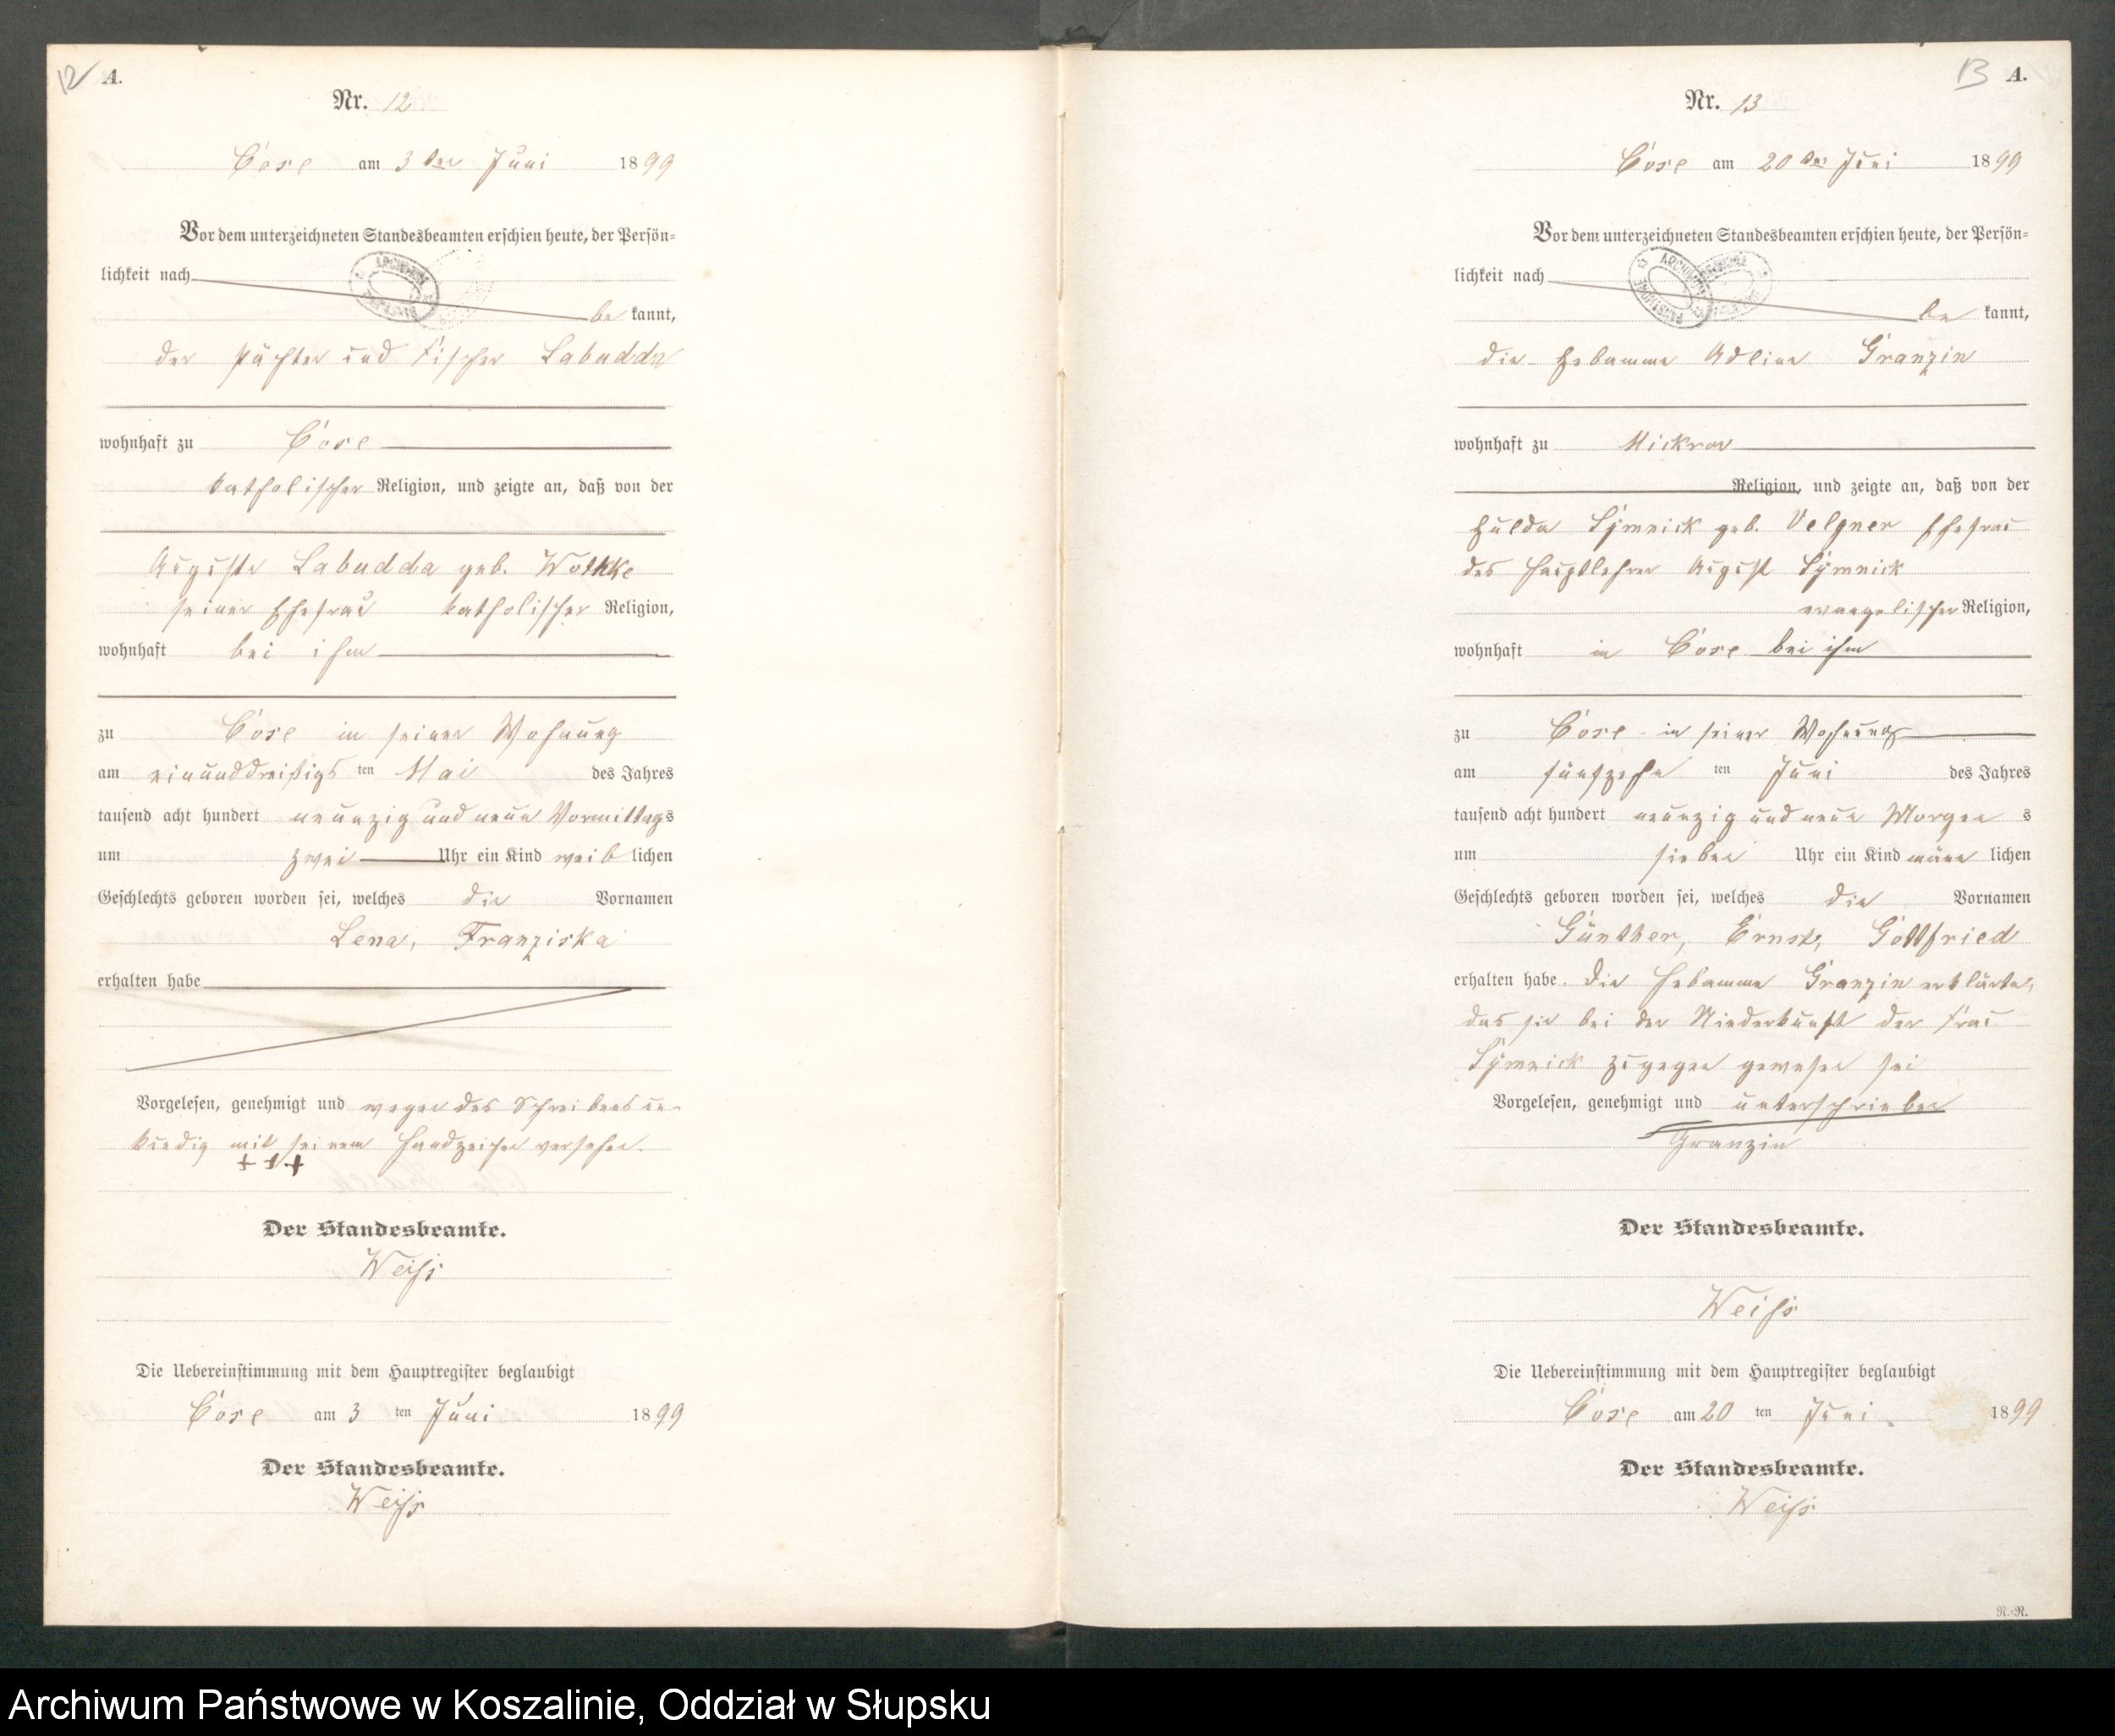 12 A.
Nr. 12
Cose am 3 ten Juni 1899
Vor dem unterzeichneten Standesbeamten erschien heute, der Persön-
lichkeit nach
be kannt,
der Pächter und Fischer Labudda
wohnhaft zu Cose
katholischer Religion, und zeigte an, daß von der
Auguste Labudda geb. Wothke
seiner Ehefrau katholischer Religion,
wohnhaft bei ihm
zu Cose in seiner Wohnung
am einunddreißigs ten Mai des Jahres
tausend acht hundert neunzig und neun Vormittags
um zwei Uhr ein Kind weib lichen
Geschlechts geboren worden sei, welches die Vornamen
Lena, Franziska
erhalten habe
Vorgelesen, genehmigt und wegen des Schreibens un-
kundig mit seinem Handzeichen versehen.
+ + +
Der Standesbeamte.
Weiß
Die Uebereinstimmung mit dem Hauptregister beglaubigt
Cose am 3 ten Juni 1899
Der Standesbeamte.
Weiß
13 A.
Nr. 13
Cose am 20 ten Juni 1899
Vor dem unterzeichneten Standesbeamten erschien heute, der Persön-
lichkeit nach
be kannt,
die Hebamme Adline Granzin
wohnhaft zu Mickrow
Religion, und zeigte an, daß von der
Hulda Symnick geb. Velgner Ehefrau
des Hauptlehrer August Symnick
evangelischer Religion,
wohnhaft in Cose bei ihm
zu Cose in seiner Wohnung
am fünfzehn ten Juni des Jahres
tausend acht hundert neunzig und neun Morgen s
um sieben Uhr ein Kind männ lichen
Geschlechts geboren worden sei, welches die Vornamen
Günther, Ernst, Gottfried
erhalten habe. Die Hebamme Granzin erklärte,
das sie bei der Niederkunft der Frau
Symnick zugegen gewesen sei
Vorgelesen, genehmigt und unterschrieben
Granzin
Der Standesbeamte.
Weiß
Die Uebereinstimmung mit dem Hauptregister beglaubigt
Cose am 20 ten Juni 1899
Der Standesbeamte.
Weiß
R.-R.
Archiwum Państwowe w Koszalinie, Oddział w Słupsku